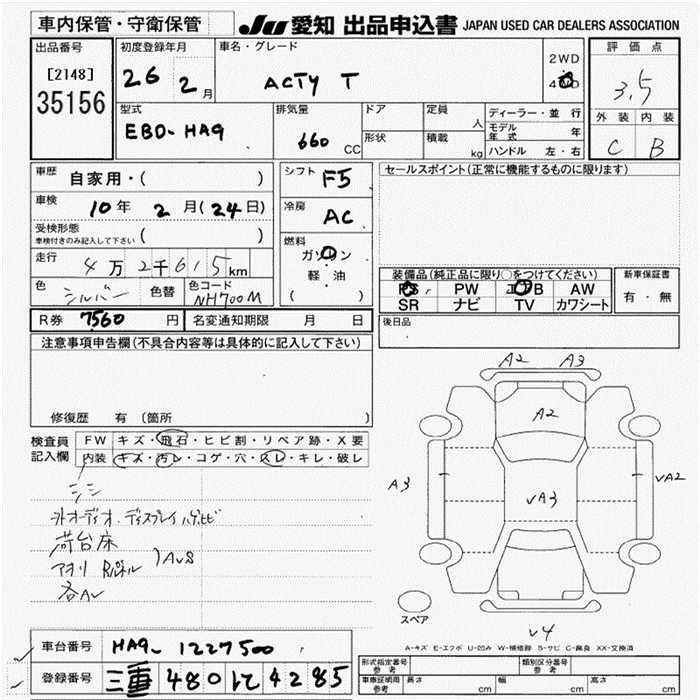 車内保管・守衛保管
JU 愛知 出品申込書 JAPAN USED CAR DEALERS ASSOCIATION
出品番号
[2148]
35156
初度登録年月
26 2月
車名・グレード
ACTY T
2WD
4WD
評価点
3.5
外装 内装
C B
型式
EBD-HA9
排気量
660 CC
ドア
形状
定員 人
積載 kg
ディーラー・並行
モデル年式 年
ハンドル 左・右
車歴 自家用・( )
車検 10年 2月(24日)
受検形態
車検付きのみ記入して下さい ( )
走行 4万2千615km
色 シルバー 色替 色コード NH700M
シフト F5
冷房 AC
燃料
ガソリン
・
軽・油
( )
セールスポイント(正常に機能するものに限ります)
装備品(純正品に限り○をつけてください)
PS PW エアB AW
SR ナビ TV カワシート
新車保証書
有・無
R券 7560円 名変通知期限 月 日
後日品
注意事項申告欄(不具合内容等は具体的に記入して下さい)
修復歴 有(箇所 )
検査員記入欄
FW キズ・飛石・ヒビ割・リペア跡・X要
内装 キズ・汚レ・コゲ・穴・スレ・キレ・破レ
外オーディオ.ディスプレイ
荷台床
アオリ Rパネル )AUS
各AU
A2 A3
A2
A3
VA3
VA2
スペア
V4
A-キズ E-エクボ U-凹み W-補修跡 S-サビ C-腐食 XX-交換済
車台番号 HA9-1227500
登録番号 三重 480 に 4285
形式指定番号 参考
類別区分番号 参考
車庫証明用 参考 長さ cm 幅 cm 高さ cm